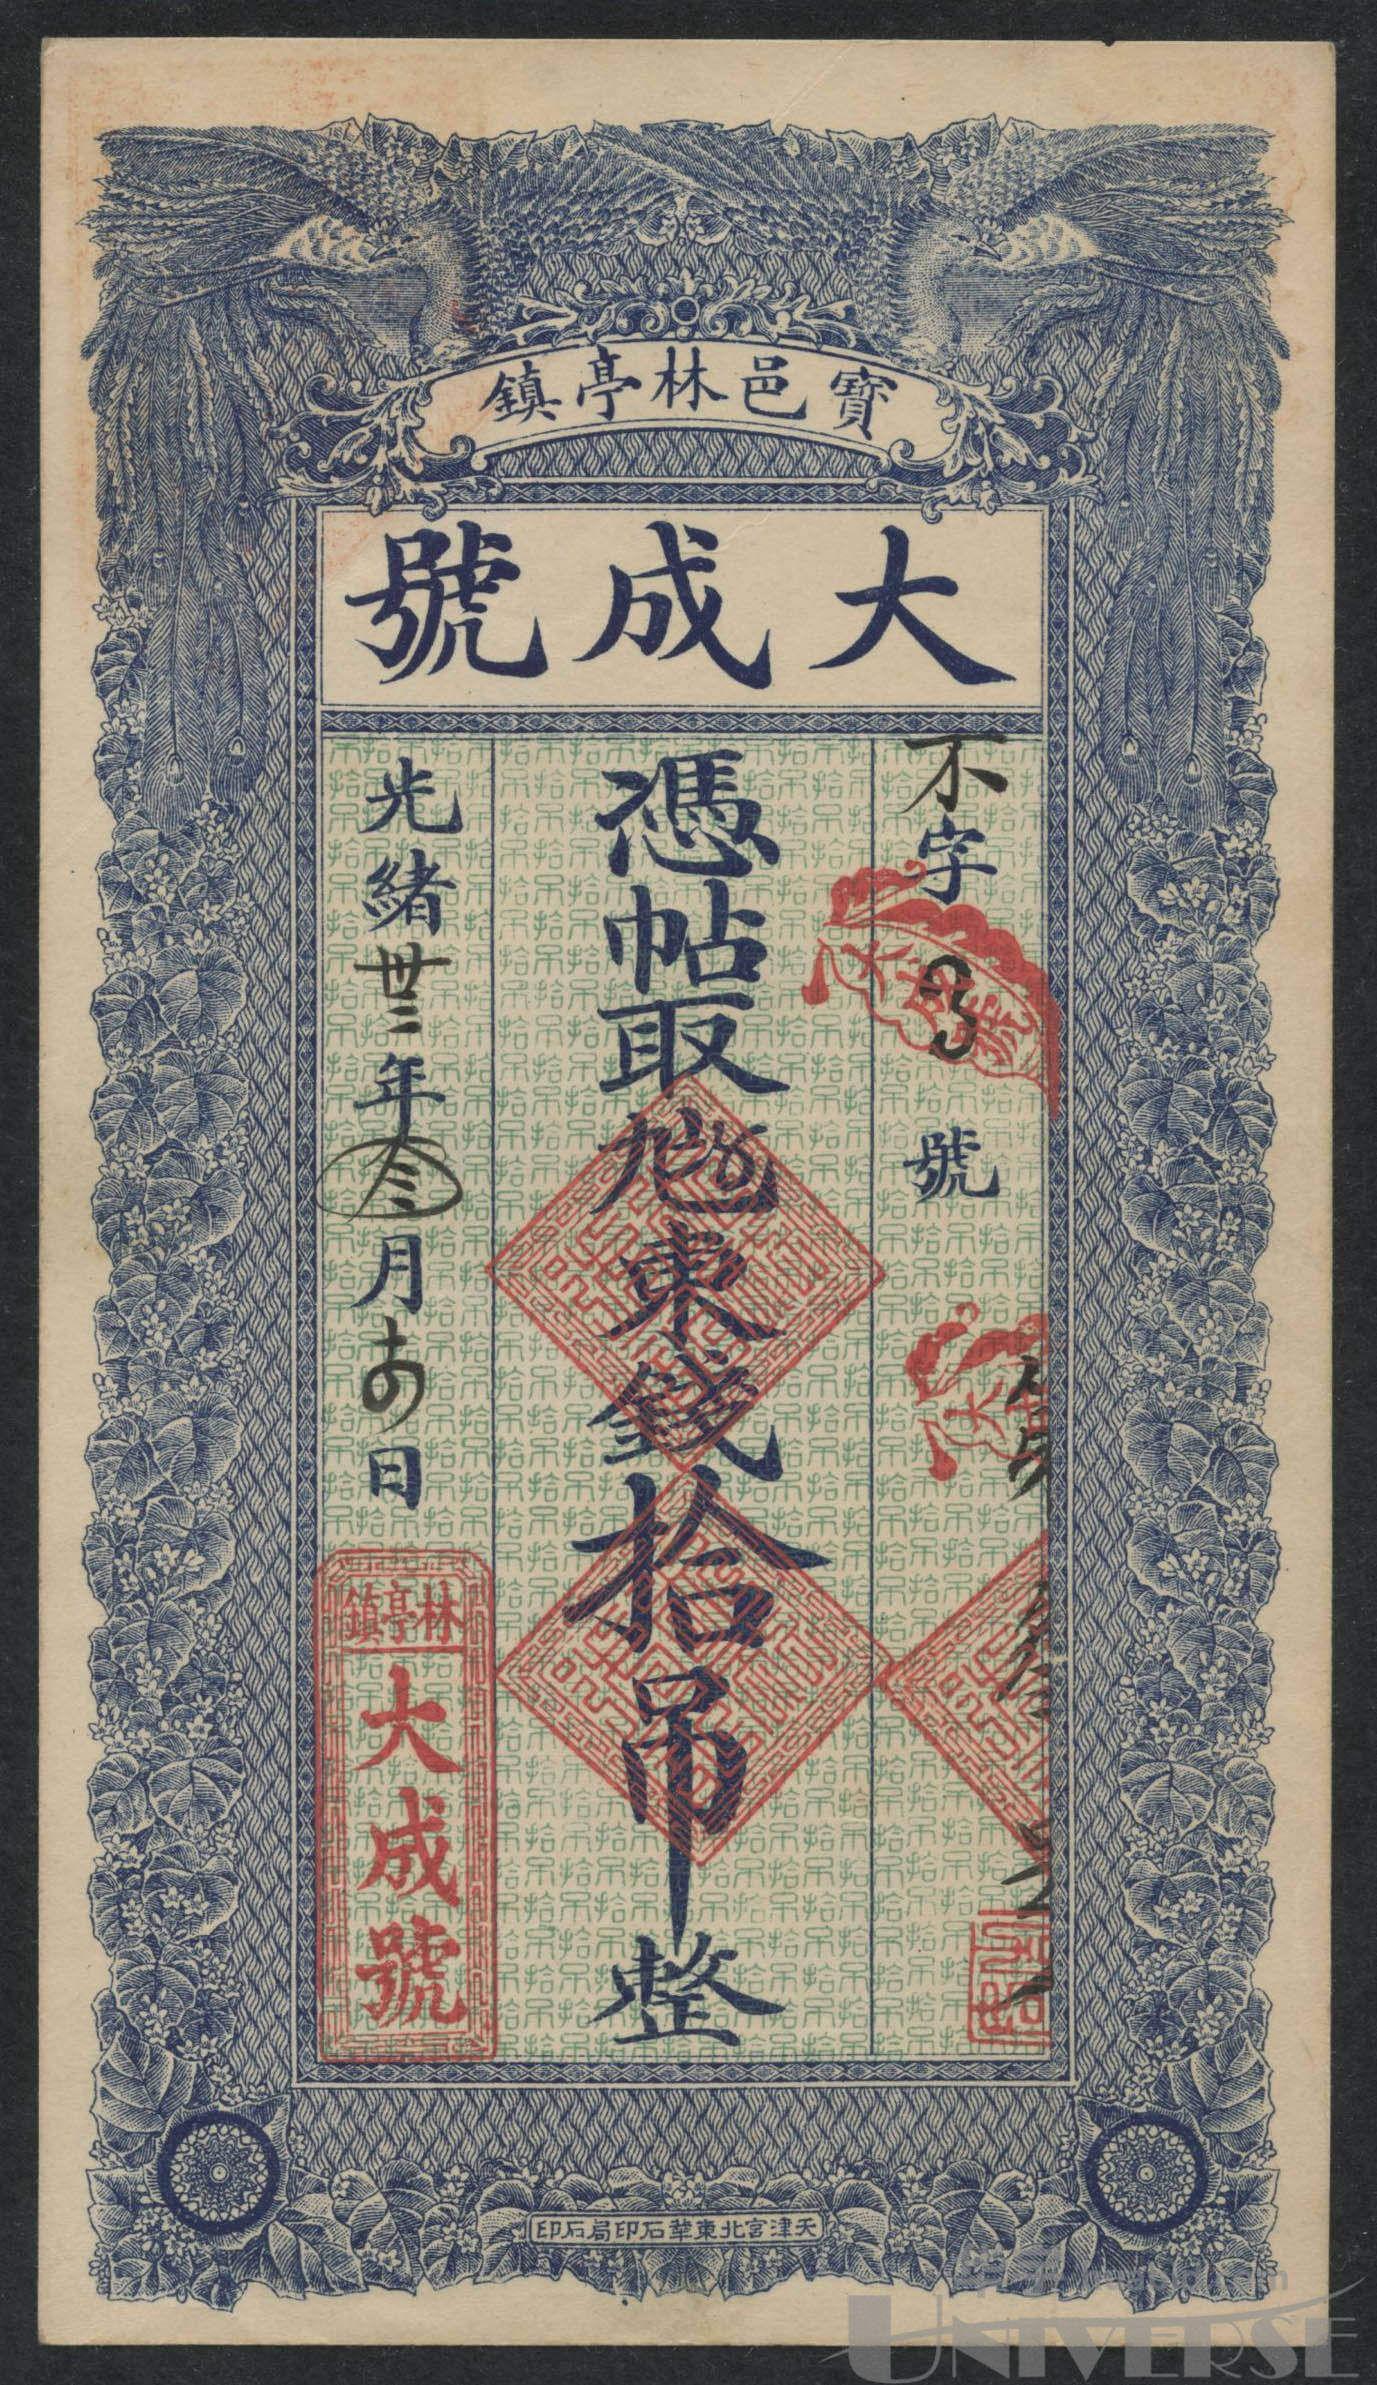 寶邑林亭鎮
大成號
不字
號
憑帖取
東錢拾吊整
光緒卅二年叁月十四日
林亭鎮
大成號
大成號
天津宮北東華石印局石印
UNIVERSE